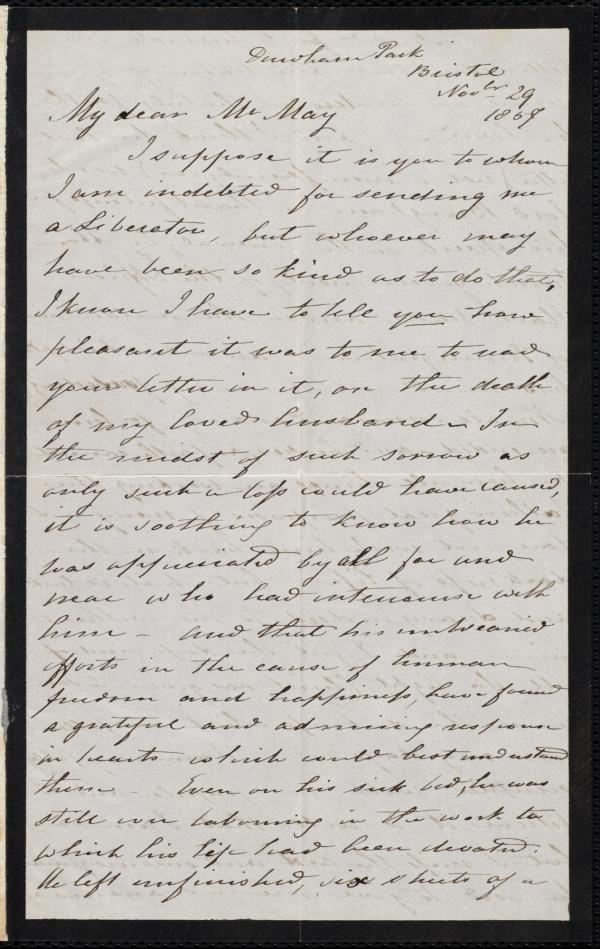 Durdham Park
Bristol
Novbr 29
1859
My dear Mr May
I suppose it is you to whom
I am indebted for sending me
a Liberator, but whoever may
have been so kind as to do that,
I know I have to tell you how
pleasant it was to me to read
your letter in it, on the death
of my loved husband - In
the midst of such sorrow as
only such a loss could have caused,
it is soothing to know how he
was appreciated by all far and
near who had intercourse with
him - and that his unwearied
efforts in the cause of human
freedom and happiness, have found
a grateful and admiring response
in hearts which could best understand
them - Even on his sick bed, he was
still ever labouring in the work to
which his life had been devoted.
He left unfinished, six sheets of a